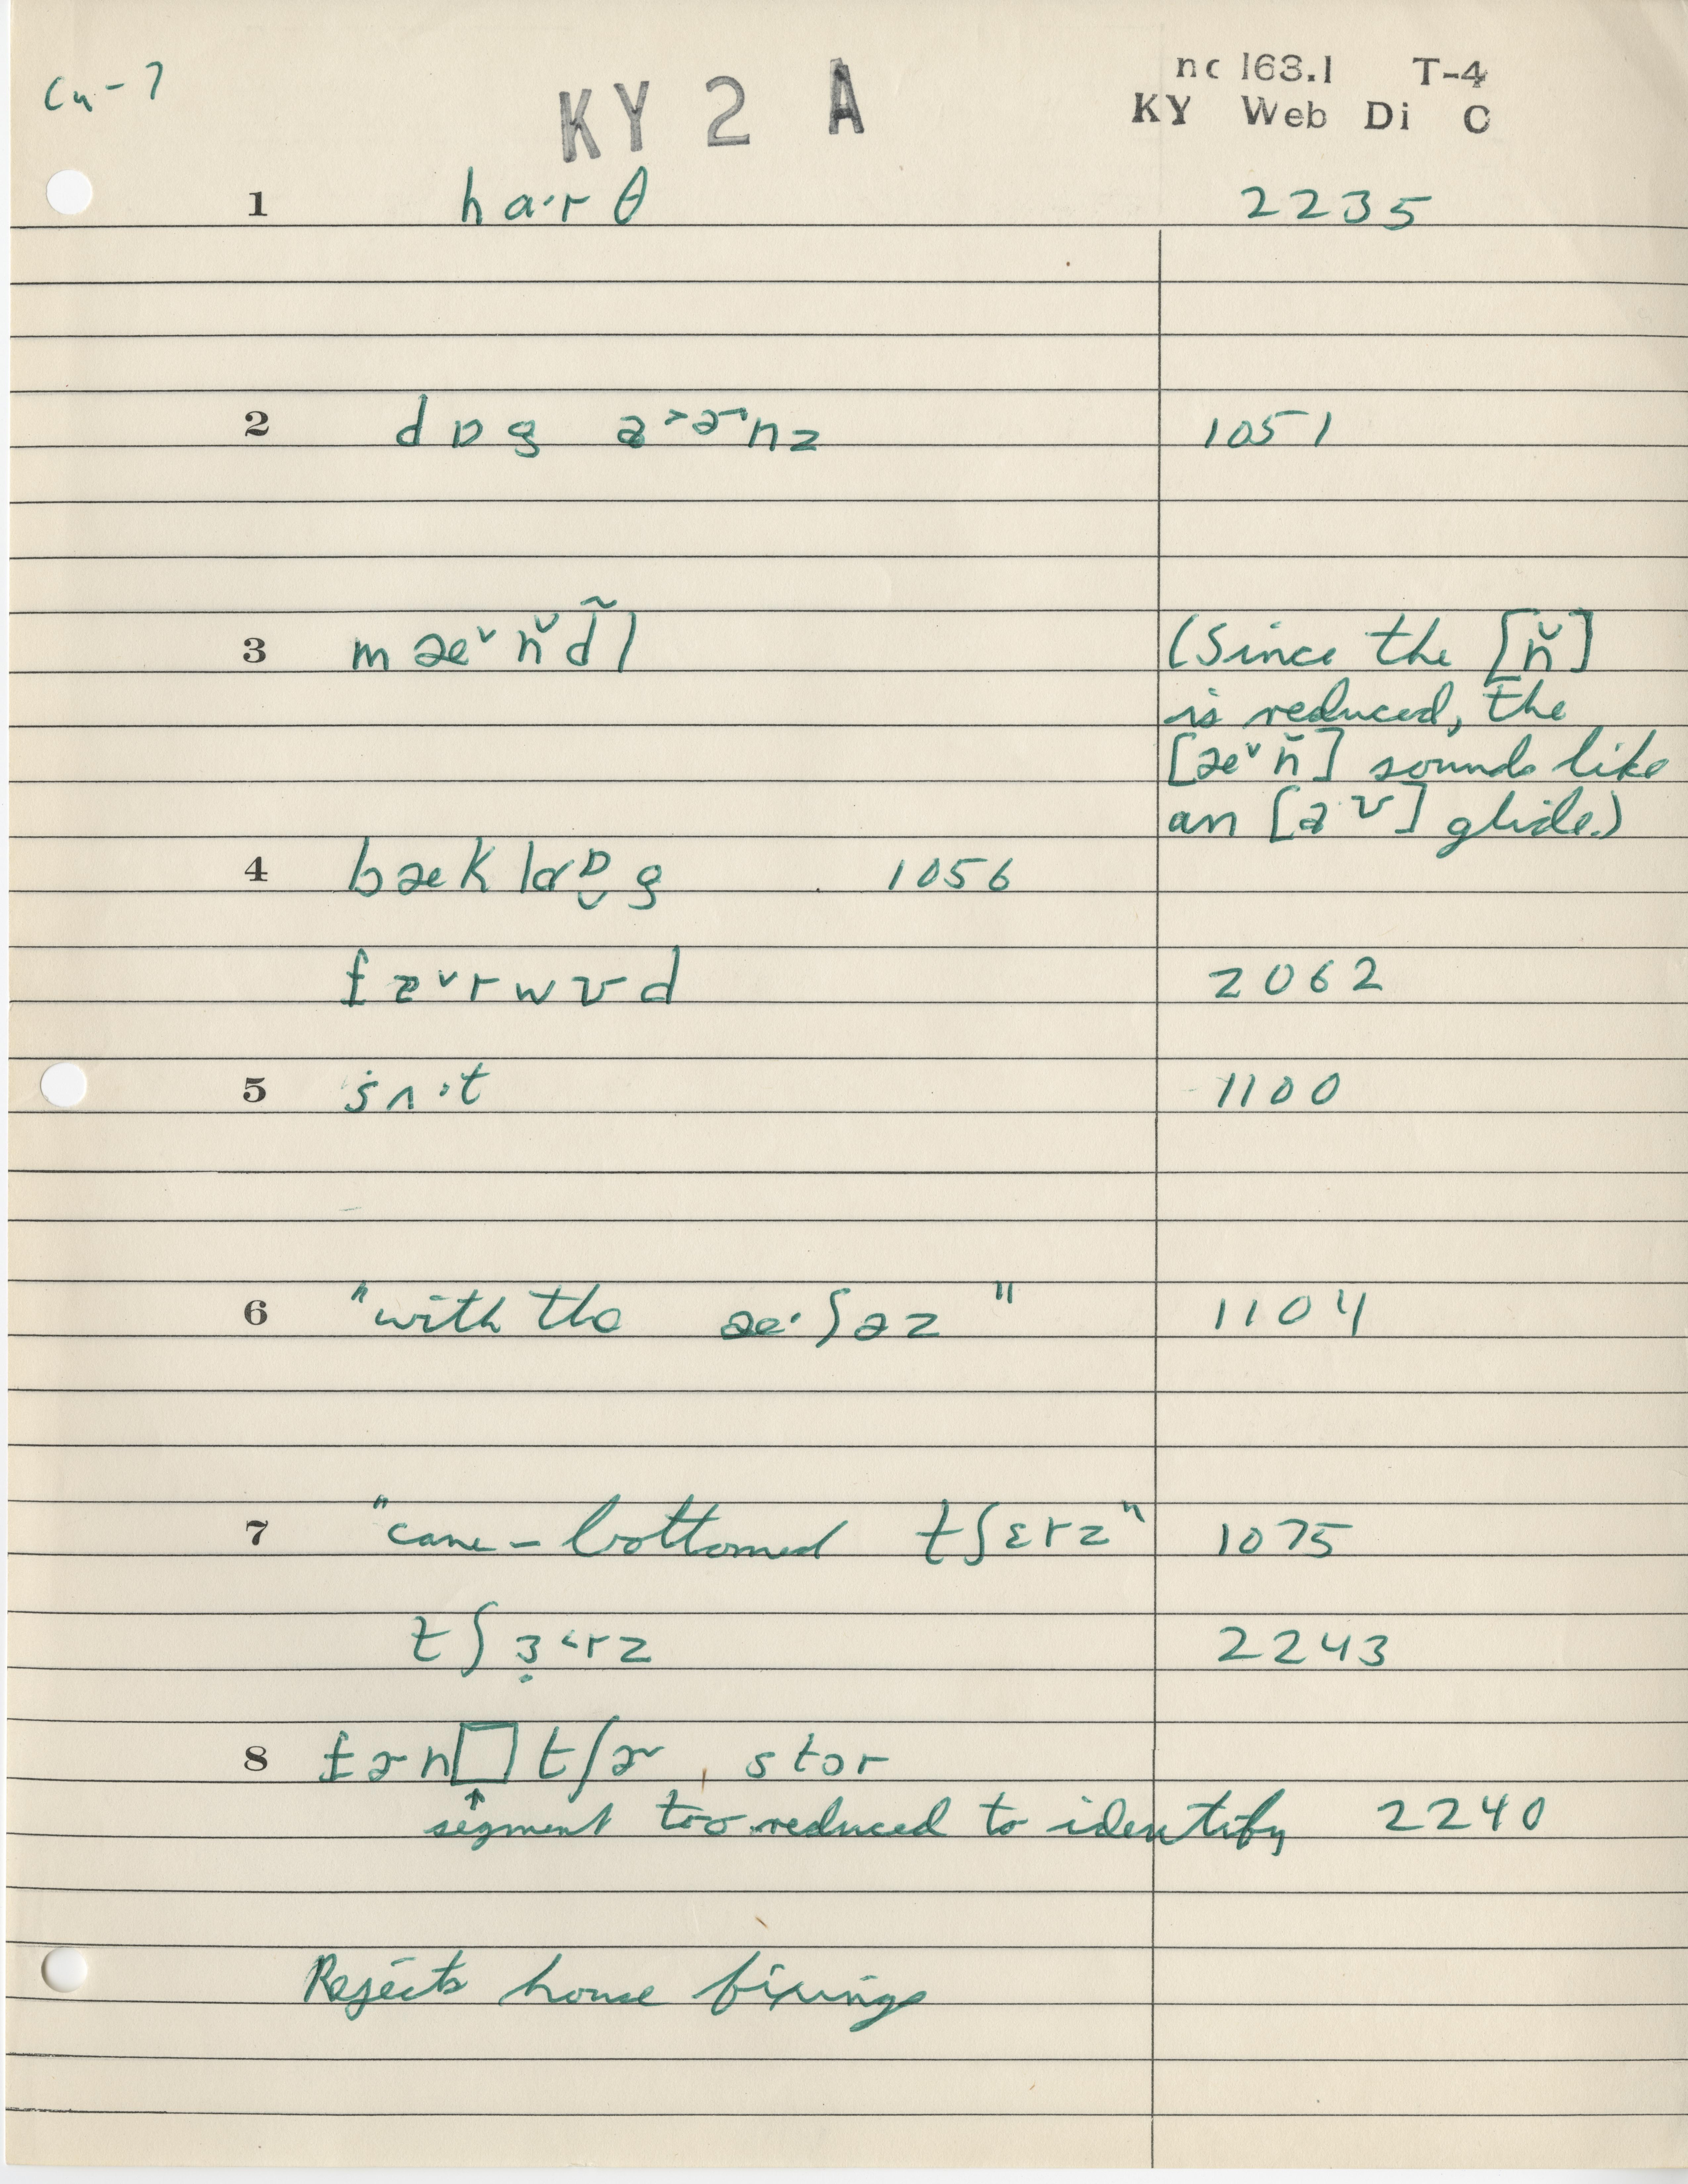 Cu-7
KY 2 A
nc 163.1 T-4
KY Web Di C
1 ha·rθ 2235
2 dɒg nz 1051
3 (Since the [n̆]
is reduced, the
[æ˅n̆] sounds like
an glide.)
4 1056
2062
5 sʌ·t 1100
6 "with the æ·ʃəz" 1104
7 "cane-bottomed tʃɛrz" 1075
2243
8 stɔr
↑
segment too reduced to identify 2240
Rejects house fixings